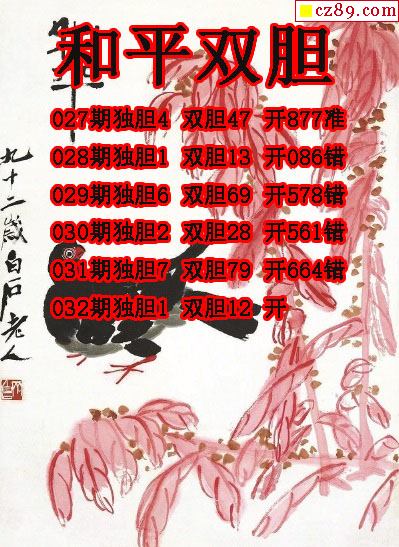 cz89.com
和平双胆
027期独胆4 双胆47 开877准
028期独胆1 双胆13 开086错
029期独胆6 双胆69 开578错
030期独胆2 双胆28 开561错
031期独胆7 双胆79 开664错
032期独胆1 双胆12 开
九十二岁白石老人